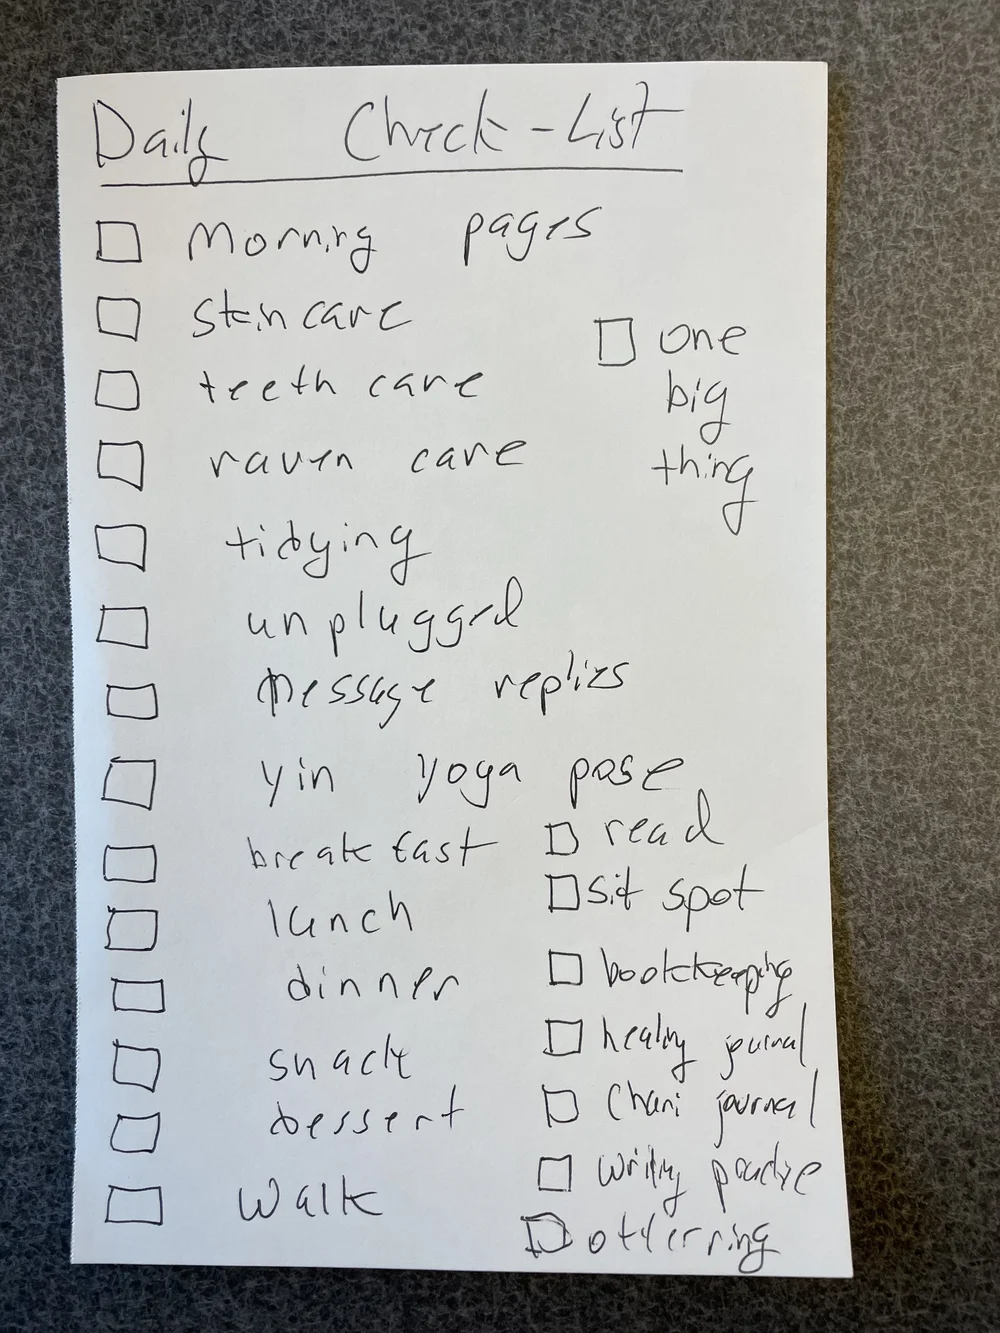 Daily Check-List
morning pages
skin care
teeth care
raven care
tidying
unplugged
message replies
yin yoga pose
breakfast
lunch
dinner
snack
dessert
walk
one
big
thing
read
sit spot
bookkeeping
healing journal
Chani journal
writing practice
offerring